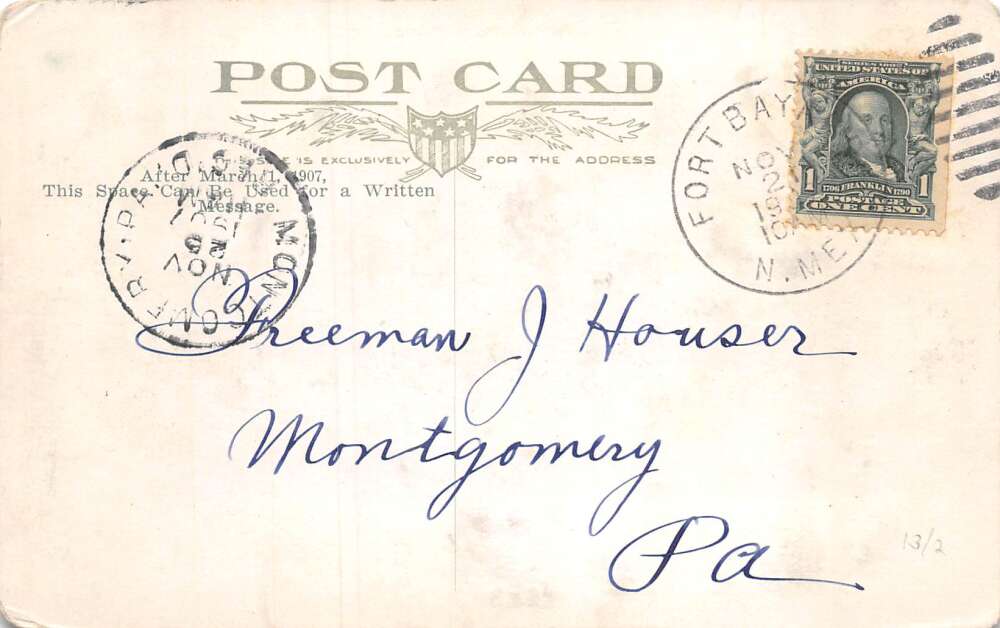 POST CARD
IS EXCLUSIVELY FOR THE ADDRESS
After March 1, 1907,
This Space Can Be Used for a Written
Message.
SERIES 1902
UNITED STATES OF
AMERICA
1 1706 FRANKLIN 1790 1
POSTAGE
ONE CENT
FORT BAY
NOV
N. MEX
MONTGOMERY PA
NOV
Freeman J Houser
Montgomery
Pa
13/2